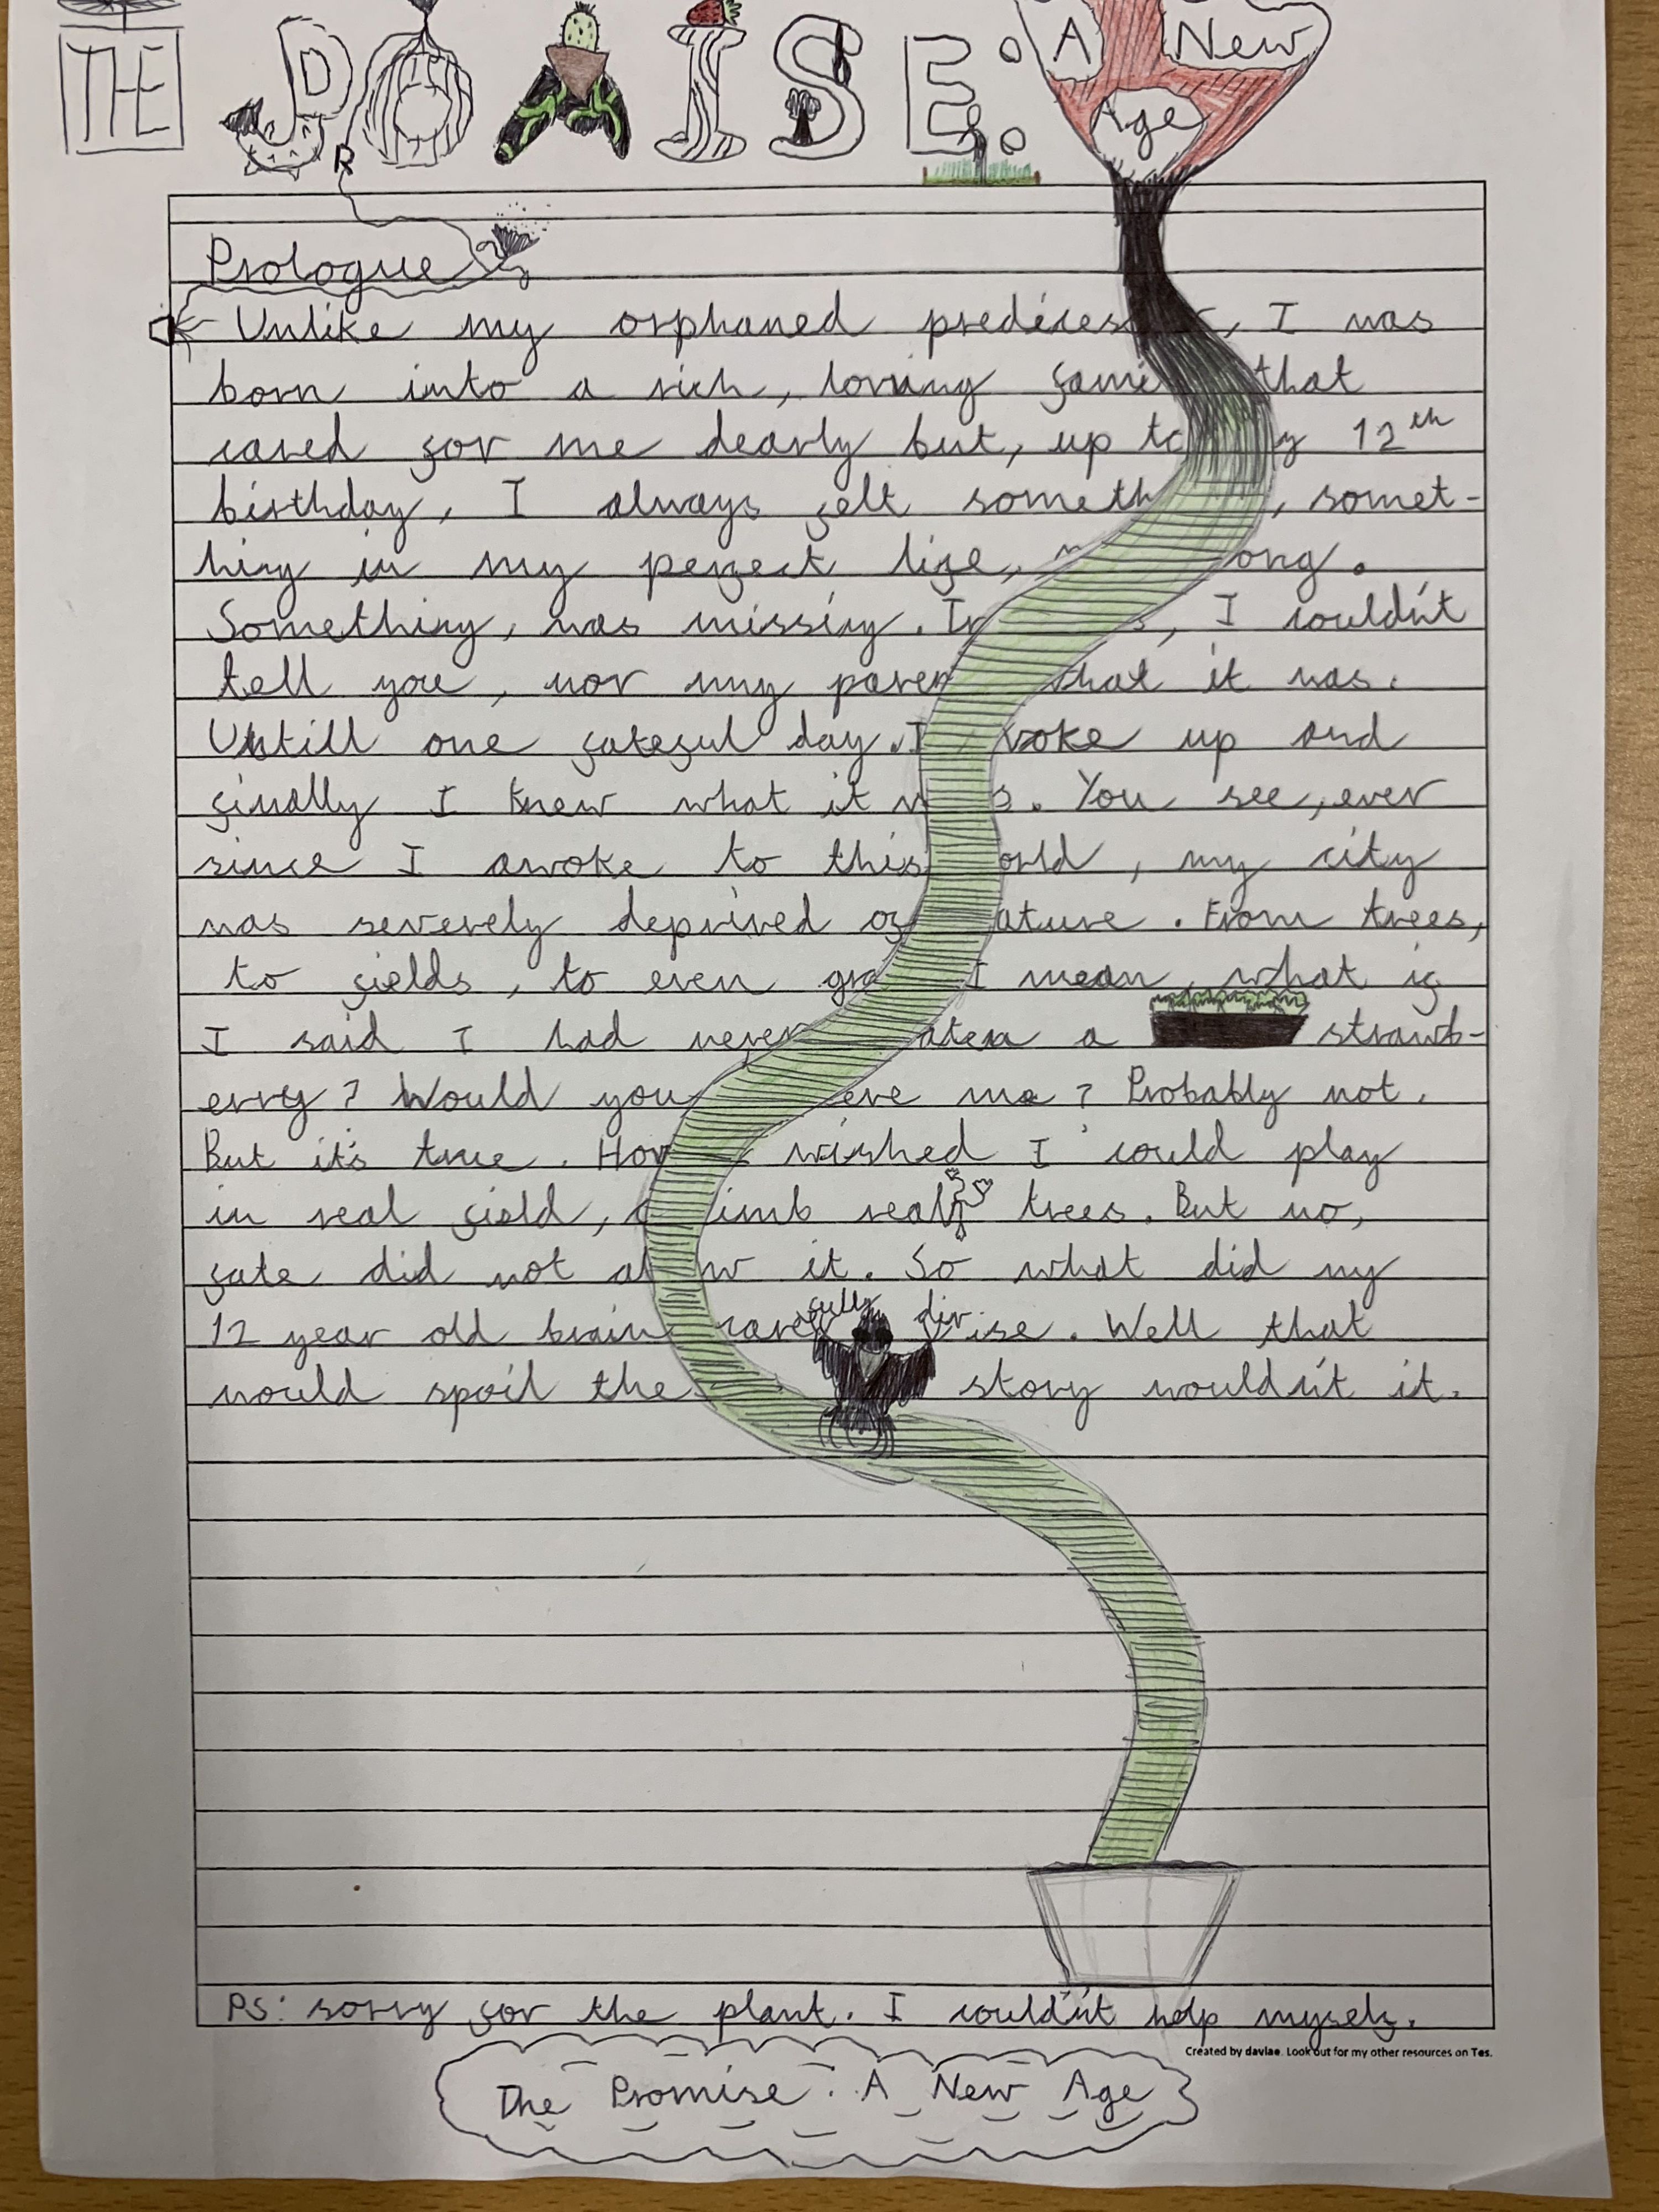 THE PROMISE: A New Age
Prologue
Unlike my orphaned predecessor, I was
born into a rich, loving family that
cared for me dearly but, up to my 12th
birthday, I always felt something, somet-
hing in my perfect life, was wrong.
Something, was missing. In I couldn't
tell you, nor my parents what it was.
Untill one fateful day. I woke up and
finally I knew what it was. You see, ever
since I awoke to this world, my city
was severely deprived of nature. From trees,
to fields, to even grass I mean, what if
I said I had never eaten a strawb-
erry? Would you believe me? Probably not.
But it's true. How I wished I could play
in real field, climb real trees. But no,
fate did not allow it. So what did my
12 year old brain carefully divise. Well that
would spoil the story wouldn't it.
PS: sorry for the plant. I couldn't help myself.
Created by davlae. Look out for my other resources on Tes.
The Promise: A New Age